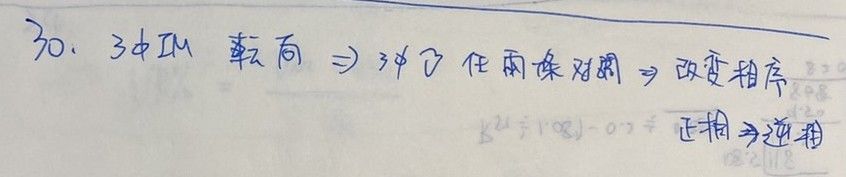 30. 3φIM 転向 ⇒ 3φ 任兩條対調 ⇒ 改变相序
正相⇒逆相